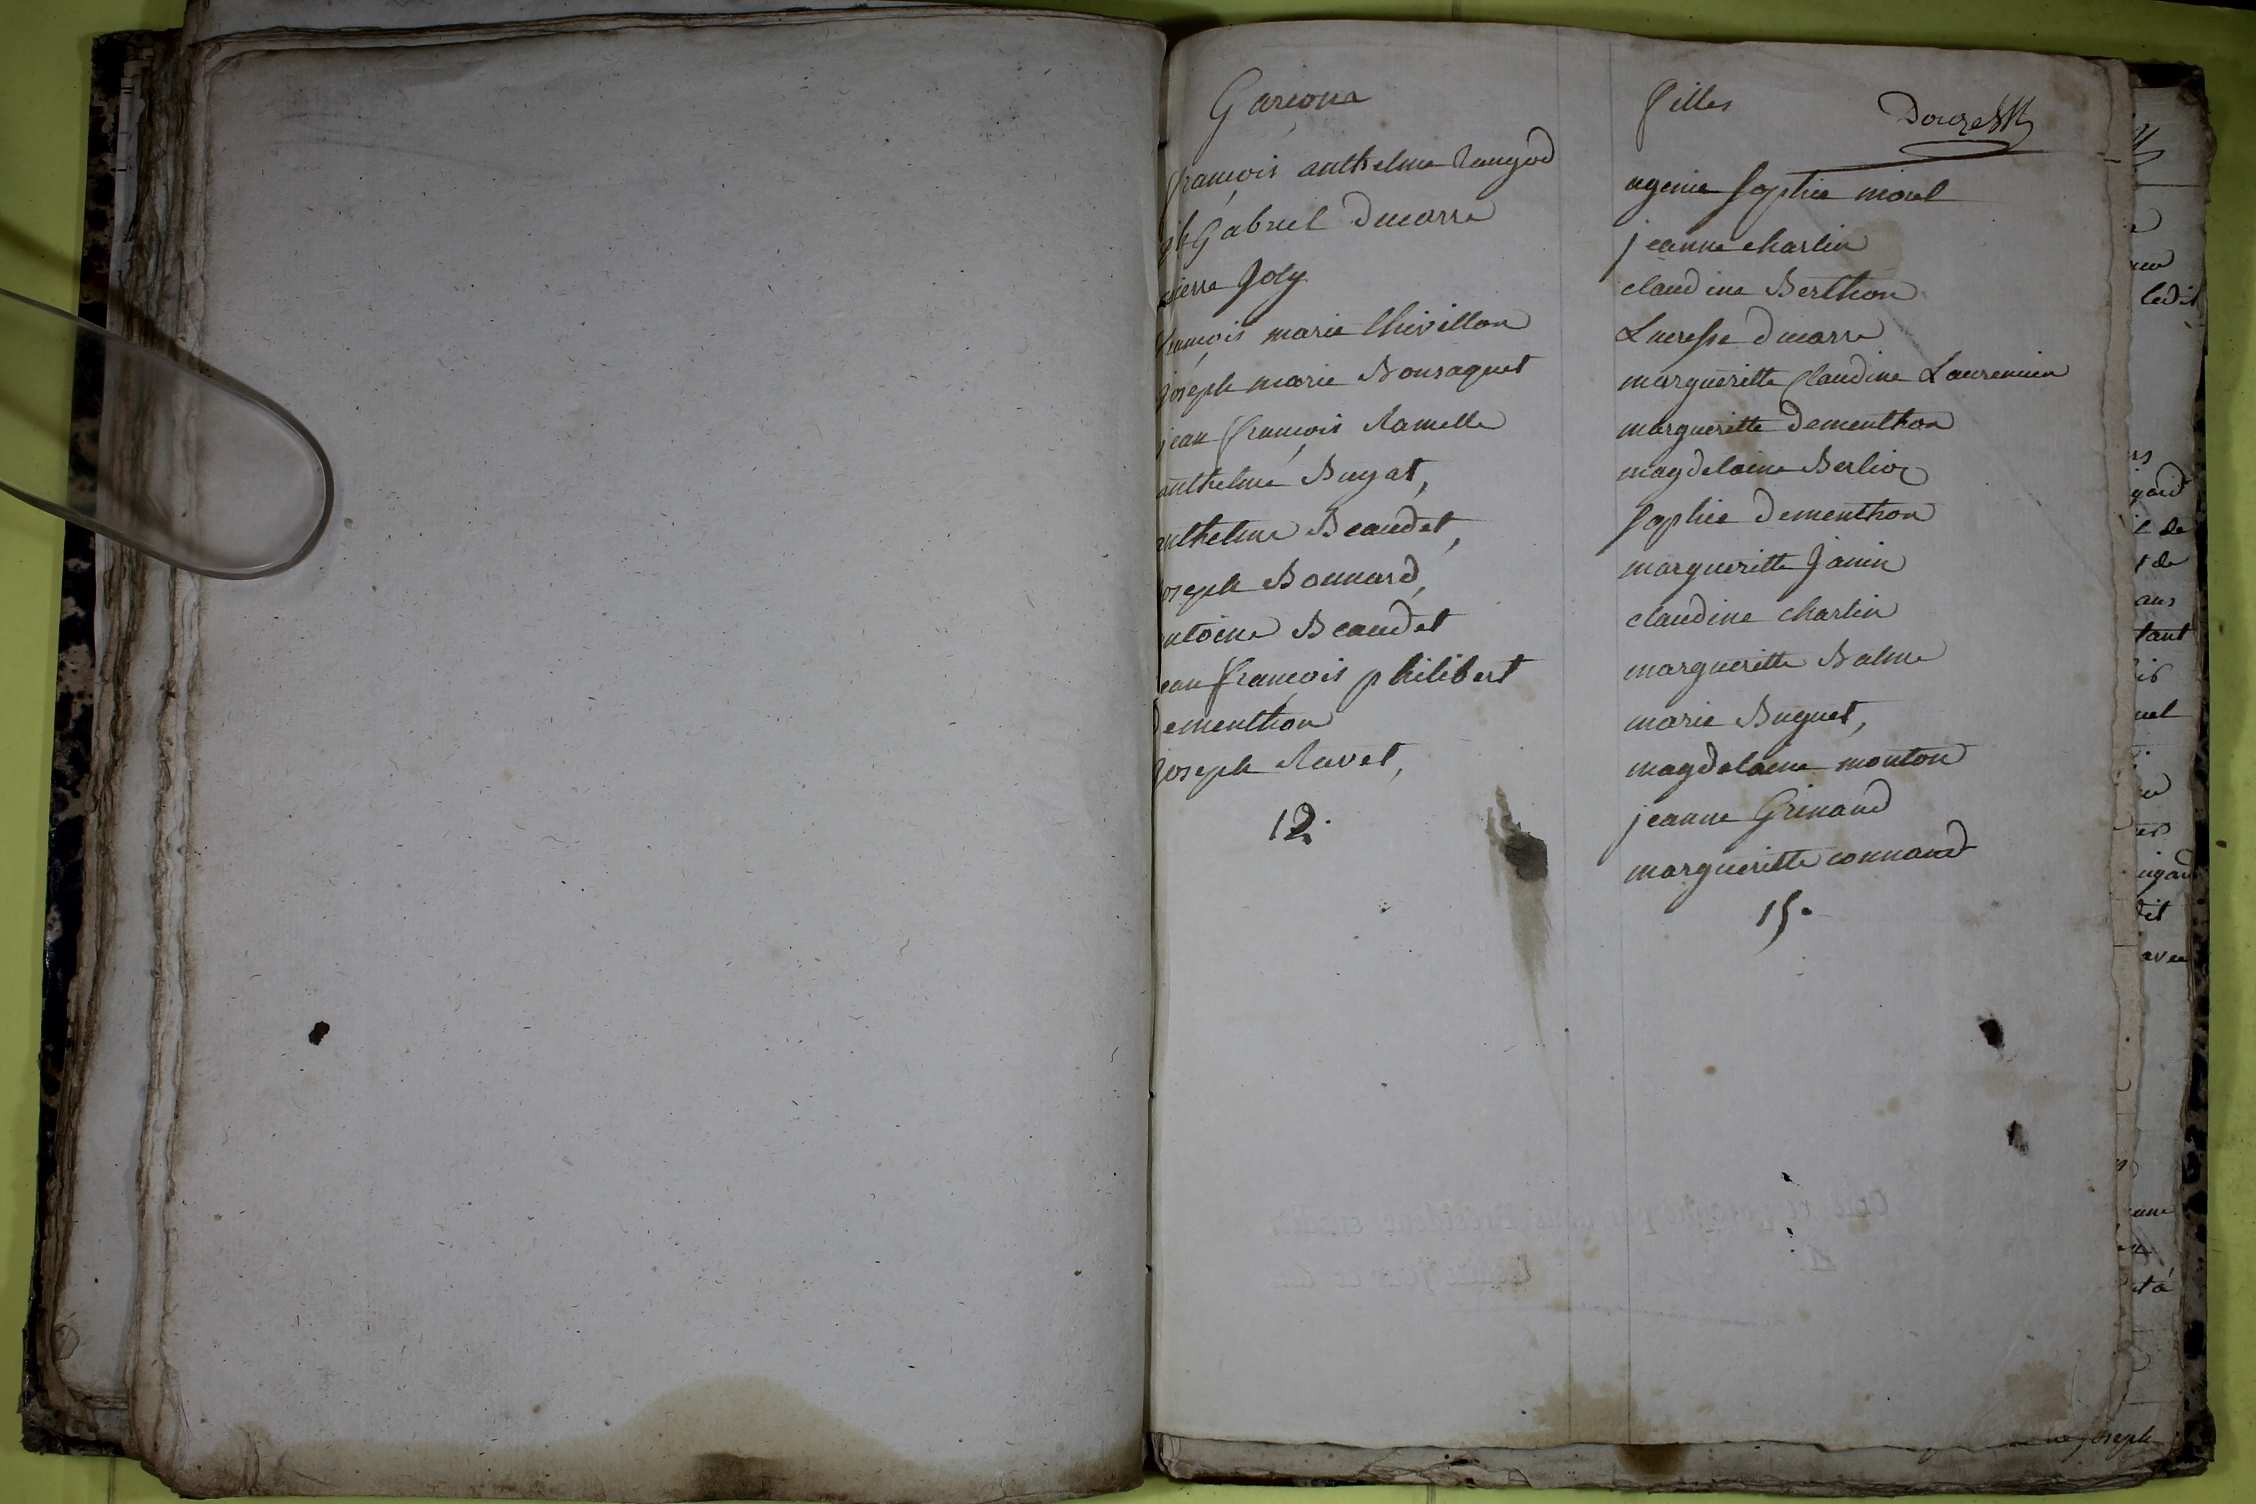 Garcons
françois anthelme Rangod
Gabriel Ducarre
pierre Joly
françois marie Chivillon
joseph marie Bonsaquet
jean françois Ramelle
anthelme Buyat,
anthelme Beaudet,
joseph Bonnard,
antoine Beaudet
jean françois philibert
dementhon
joseph Ravet,
12.
filles
Douze
ugenie sophie morel
jeanne charlin
claudine Berthon
Lucresse ducarre
margueritte Claudine Laurencin
margueritte dementhon
magdelaine Berlioz
sophie dementhon
margueritte Janin
claudine charlin
margueritte Balme
marie Buguet,
magdelaine monton
jeanne Grinand
margueritte connand
15.
ledit
de
de
ans
tant
avec
joseph